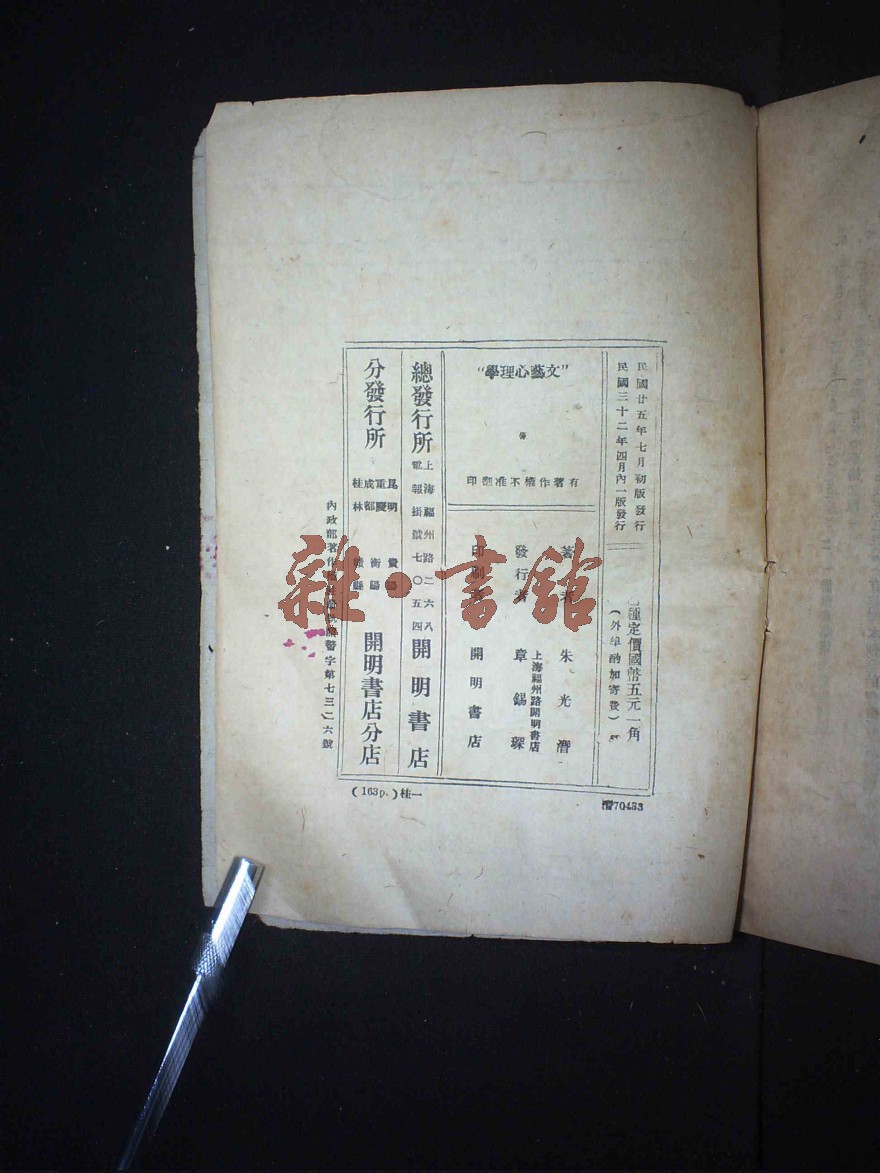 民國廿五年七月初版發行
民國三十二年四月內一版發行
種定價國幣五元一角
(外埠酌加寄費)
“文藝心理學”
有著作權不准翻印
著
朱光潛
發行者
上海福州路開明書店
章錫琛
印刷
開明書店
總發行所
上海福州路二六八
電報掛號七〇五四
開明書店
分發行所
昆明
重慶
成都
桂林
衡陽
贛縣
開明書店分店
內政部著作
警字第七三二六號
(163p.)桂一
潛70433
雜·書館